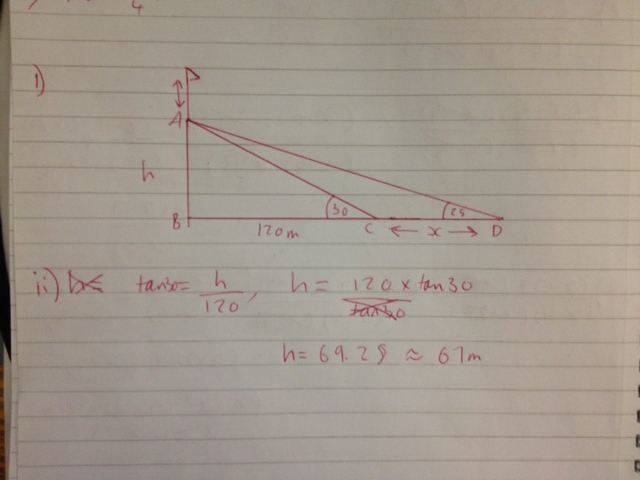 4
i)
A
h
30
25
B
120m
C
x
D
ii) tan30 = h/120, h = 120 x tan30
tan30
h = 69.28 ≈ 67m